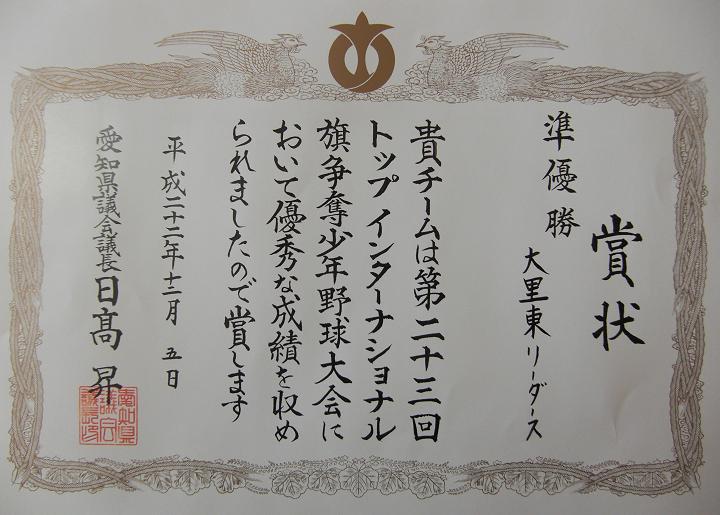 賞状
準優勝
大里東リーダース
貴チームは第二十三回
トップインターナショナル
旗争奪少年野球大会に
おいて優秀な成績を収め
られましたので賞します
平成二十二年十二月五日
愛知県議会議長 日髙 昇
愛知県
議会
議長印